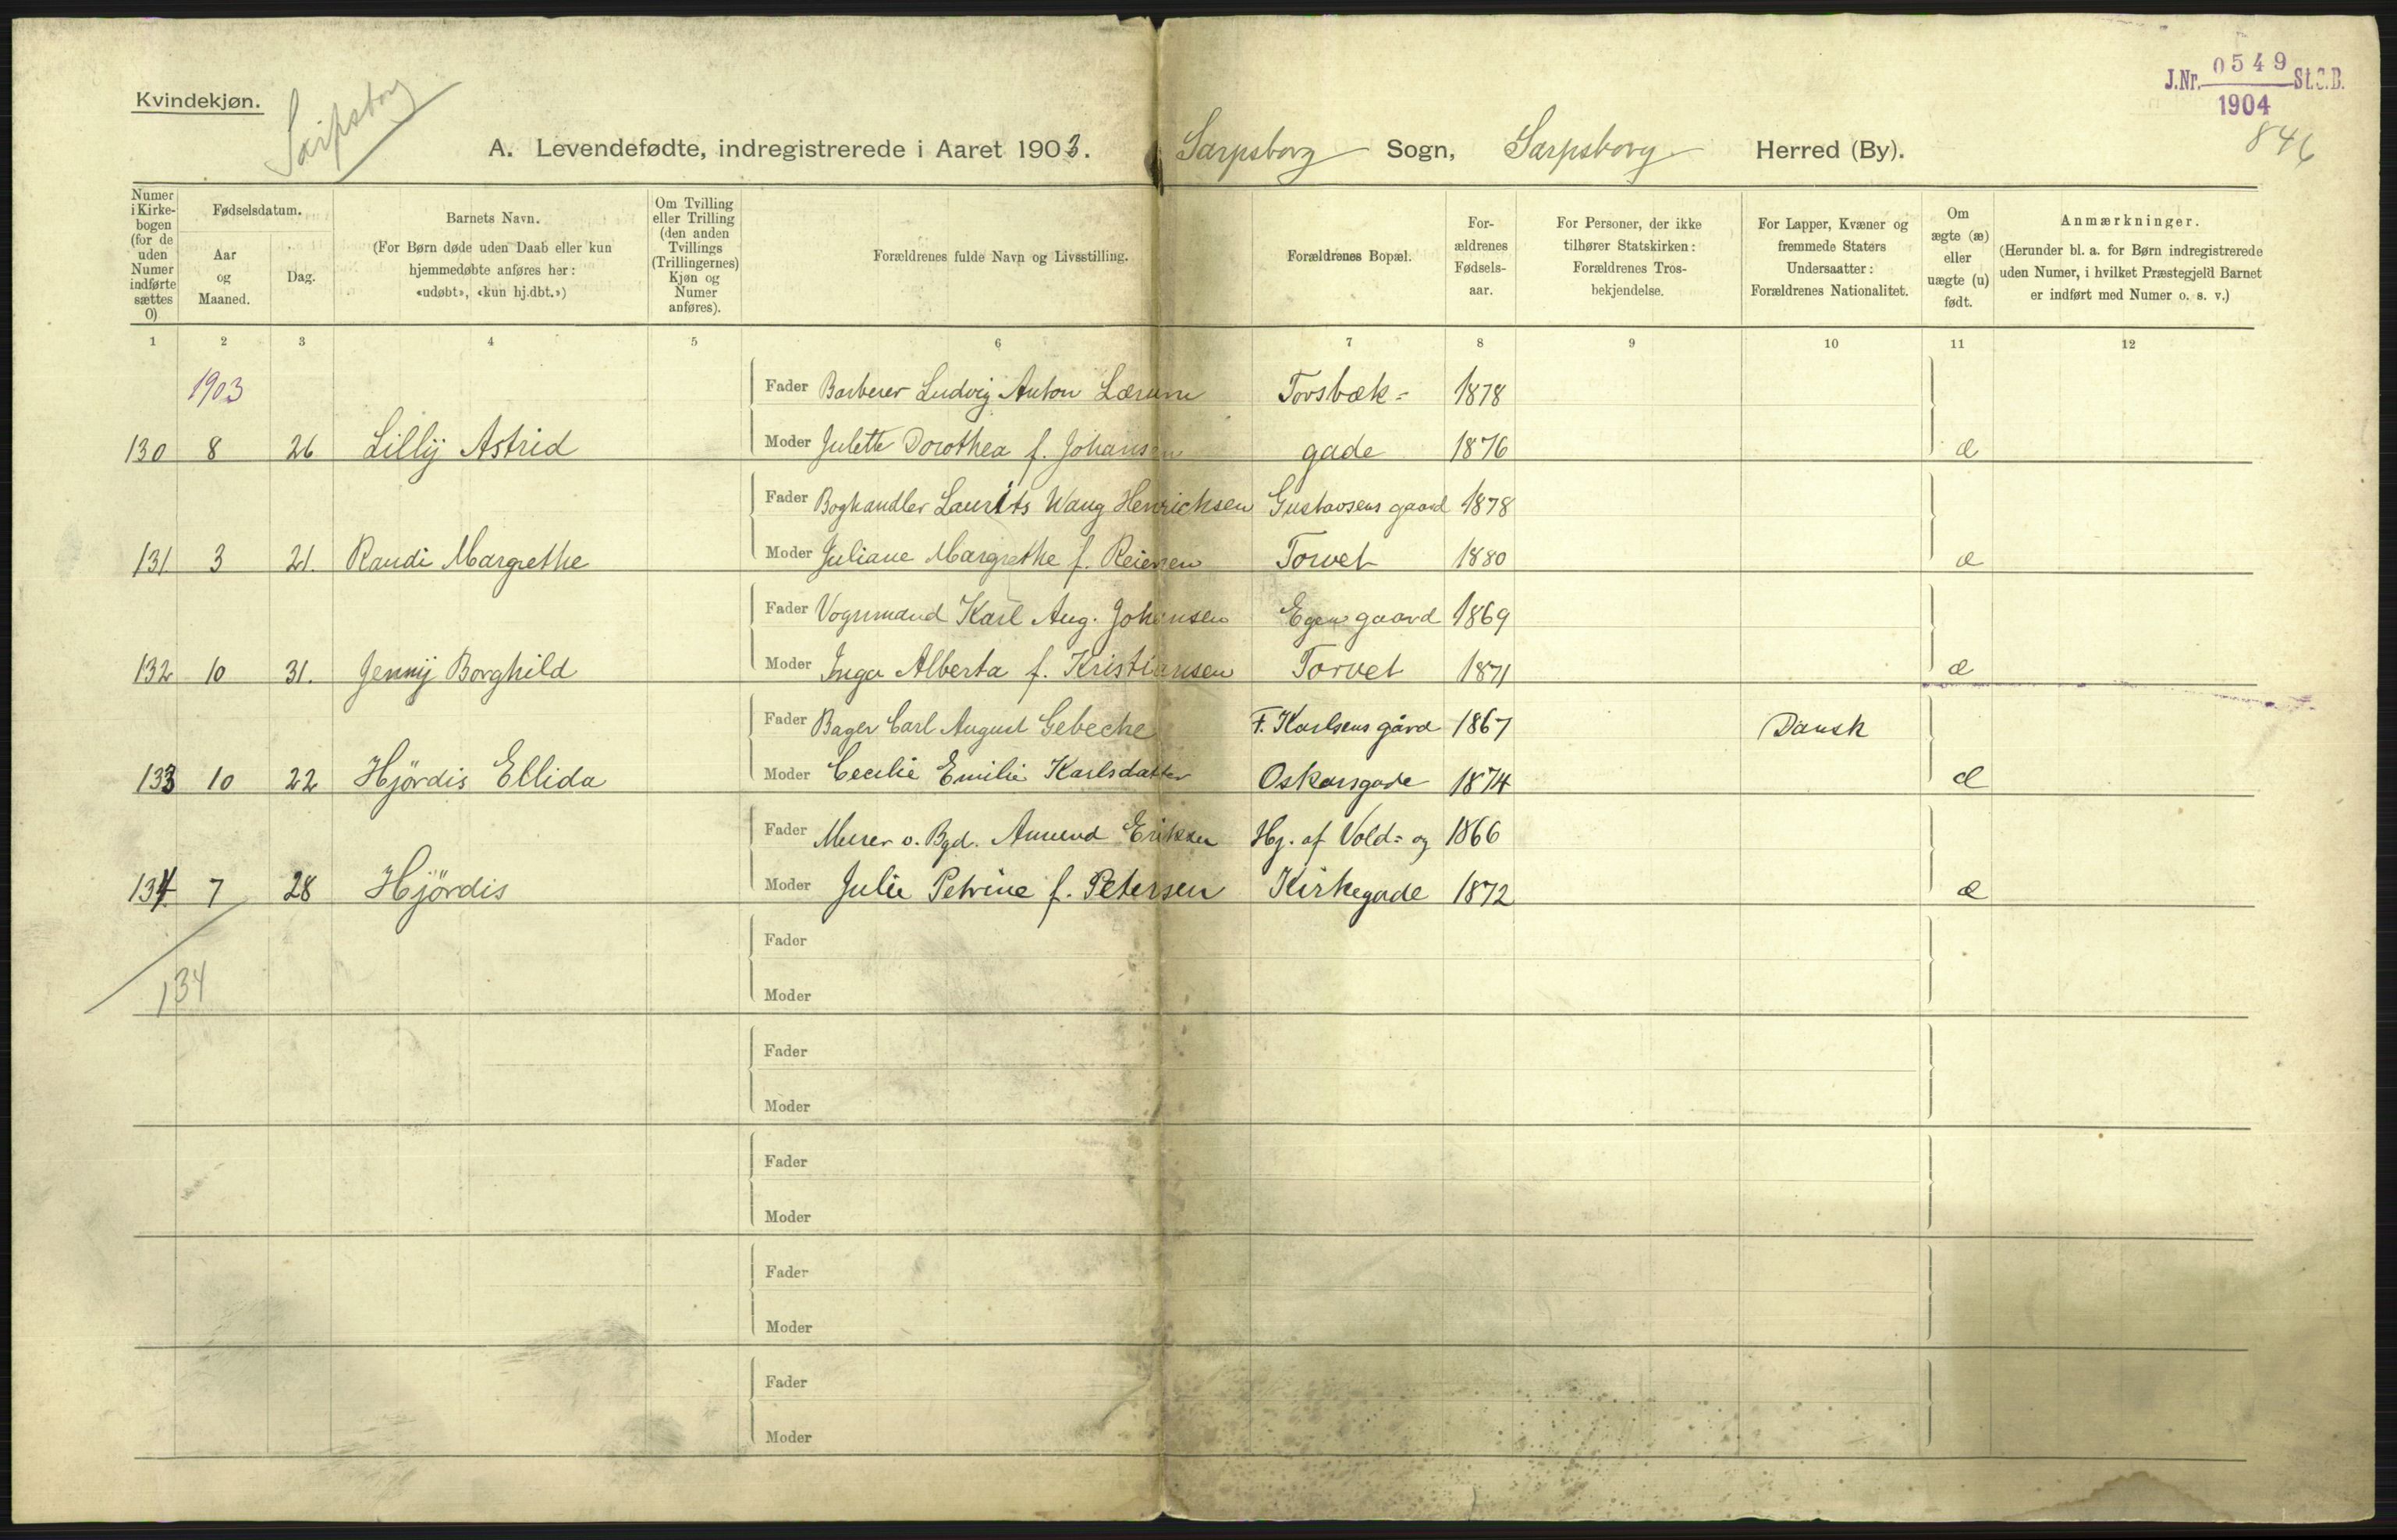 Kvindekjøn.
Sarpsborg
J.Nr. 0549 St.C.B.
1904
846
A. Levendefødte, indregistrerede i Aaret 1903. Sarpsborg Sogn, Sarpsborg Herred (By).
Numer i Kirkebogen (for de uden Numer indførte sættes 0)
Fødselsdatum.
Aar og Maaned.
Dag.
Barnets Navn.
(For Børn døde uden Daab eller kun hjemmedøbte anføres her: «udøbt», «kun hj.dbt.»)
Om Tvilling eller Trilling (den anden Tvillings (Trillingernes) Kjøn og Numer anføres).
Forældrenes fulde Navn og Livsstilling.
Forældrenes Bopæl.
Forældrenes Fødselsaar.
For Personer, der ikke tilhører Statskirken: Forældrenes Trosbekjendelse.
For Lapper, Kvæner og fremmede Staters Undersaatter: Forældrenes Nationalitet.
Om ægte (æ) eller uægte (u) født.
Anmærkninger.
(Herunder bl. a. for Børn indregistrerede uden Numer, i hvilket Præstegjeld Barnet er indført med Numer o. s. v.)
1 2 3 4 5 6 7 8 9 10 11 12
1903 Fader Barberer Ludvig Anton Lærum Torsbæk= 1878
130 8 26 Lilly Astrid Moder Julette Dorothea f. Johansen gade 1876 æ
Fader Boghandler Laurits Wang Henrichsen Gustavsens gaard 1878
131 3 21. Randi Margrethe Moder Juliane Margrethe f. Reiersen Torvet 1880 æ
Fader Vognmand Karl Aug. Johansen Egen gaard 1869
132 10 31. Jenny Borghild Moder Inga Alberta f. Kristiansen Torvet 1871 æ
Fader Bager Carl August Gebecke F. Karlsens gård 1867 Dansk
133 10 22 Hjördis Ellida Moder Cecilie Emilie Karlsdatter Oskarsgade 1874 æ
Fader Murer o. Bgd. Amund Eriksen Hj. af Vold= og 1866
134 7 28 Hjördis Moder Julie Petrine f. Petersen Kirkegade 1872 æ
Fader
134
Moder
Fader
Moder
Fader
Moder
Fader
Moder
Fader
Moder